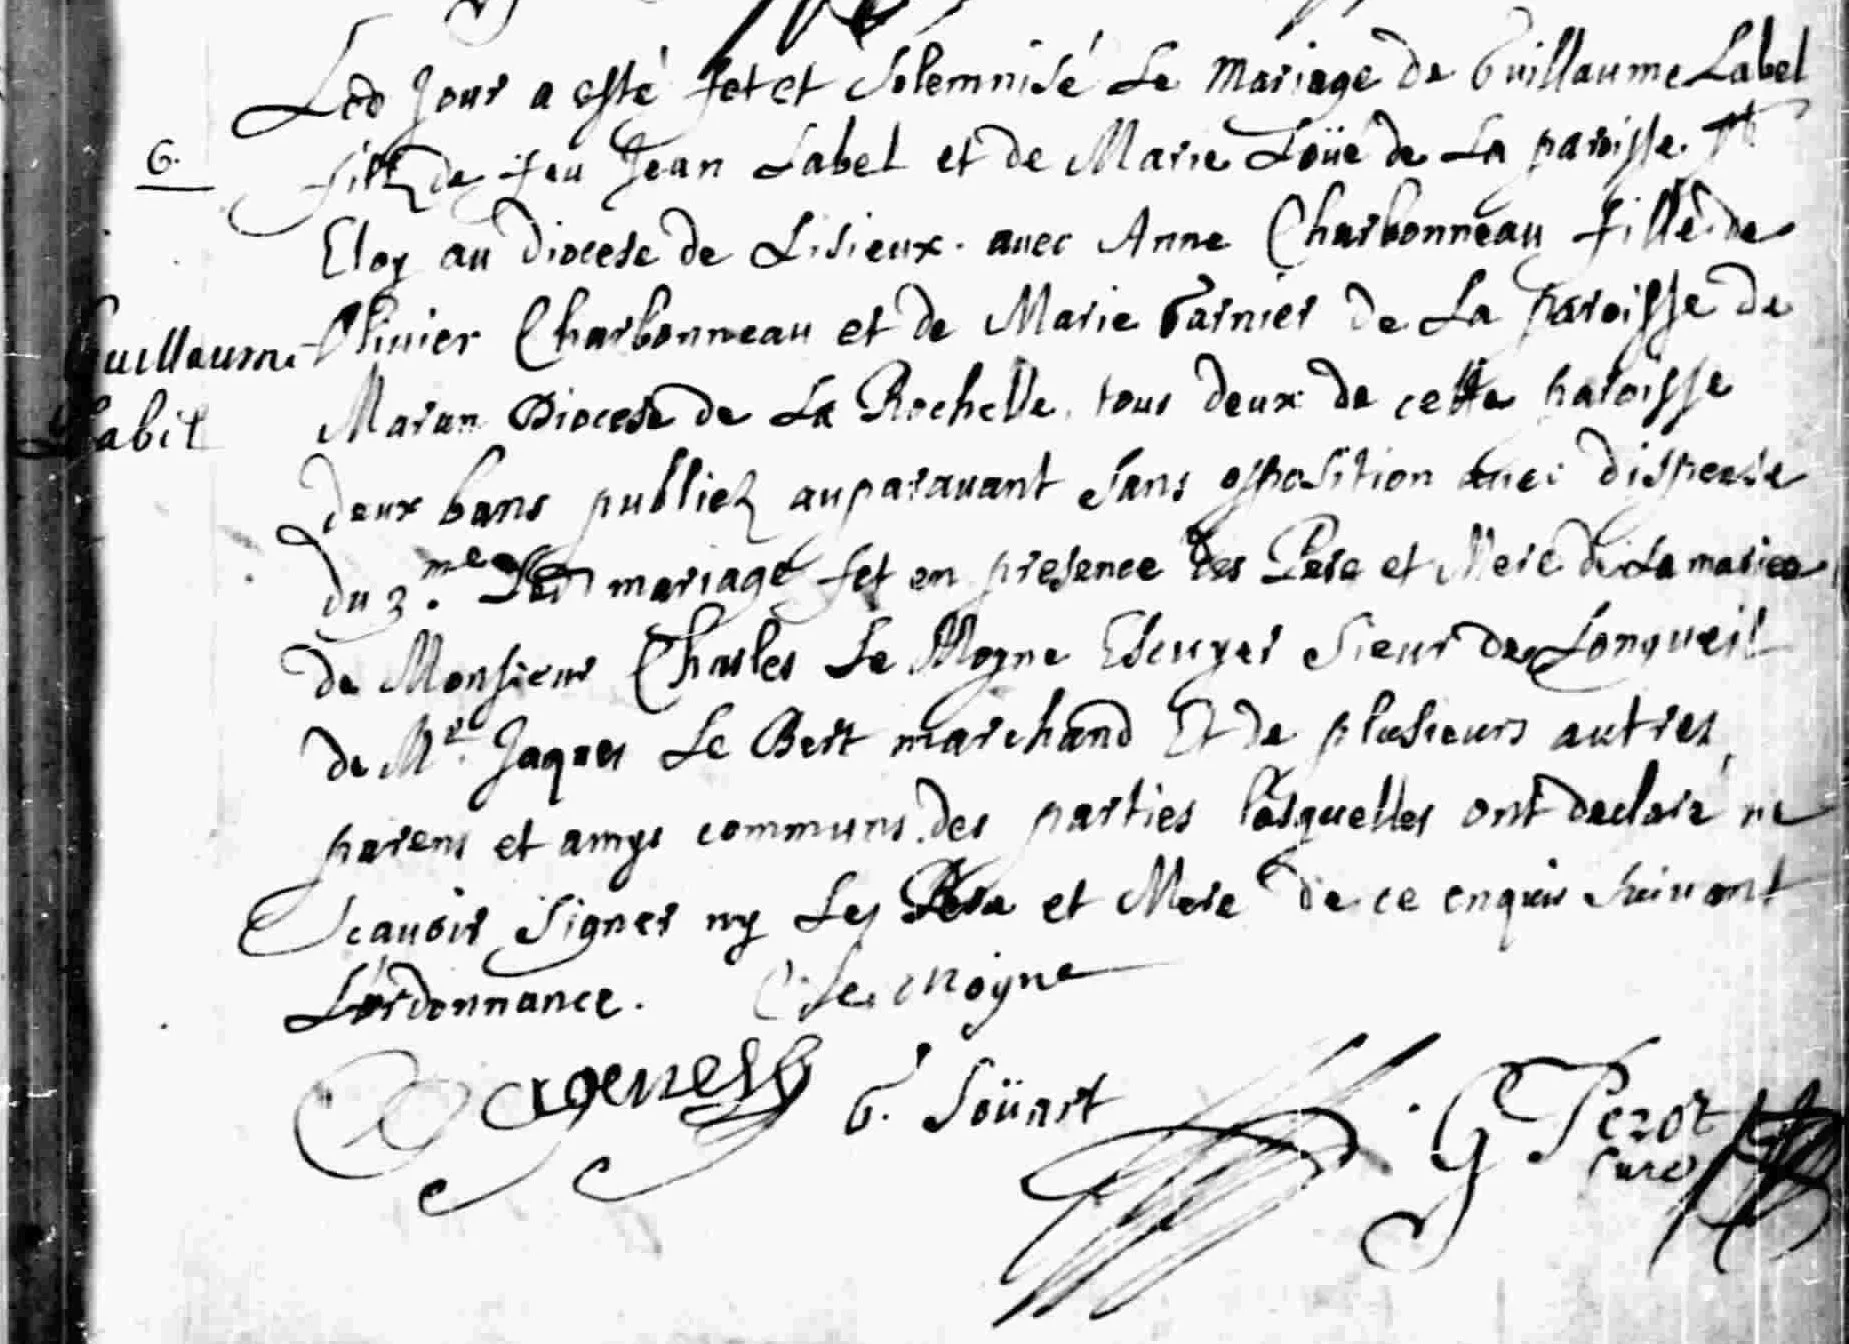 6.
Guillaume
Labil
Led Jour a esté fet et solemnisé Le Mariage de Guillaume Label
fils de feu Jean Label et de Marie Loüé de La paroisse St
Eloy au Diocese de Lisieux. avec Anne Charbonneau fille de
Olivier Charbonneau et de Marie Garnier de La paroisse de
Maran Diocese de La Rochelle, tous deux de cette paroisse
deux bans publiez auparauant sans opposition auec dispense
du 3.me Led mariage fet en presence des Pere et Mere de La mariée
de Monsieur Charles Le Moyne Escuyer sieur de Longueil
de Mr. Jaques Le Bert marchand Et de plusieurs autres
parens et amys communs des parties lesquelles ont declaré ne
scauoir signer ny Les Pere et Mere de ce enquis suiuant
L'ordonnance. C Le Moyne
G. Soüart
G Perot
Curé